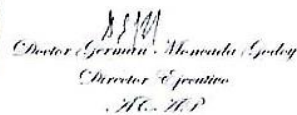 Doctor Germán Moncada Godoy
Director Ejecutivo